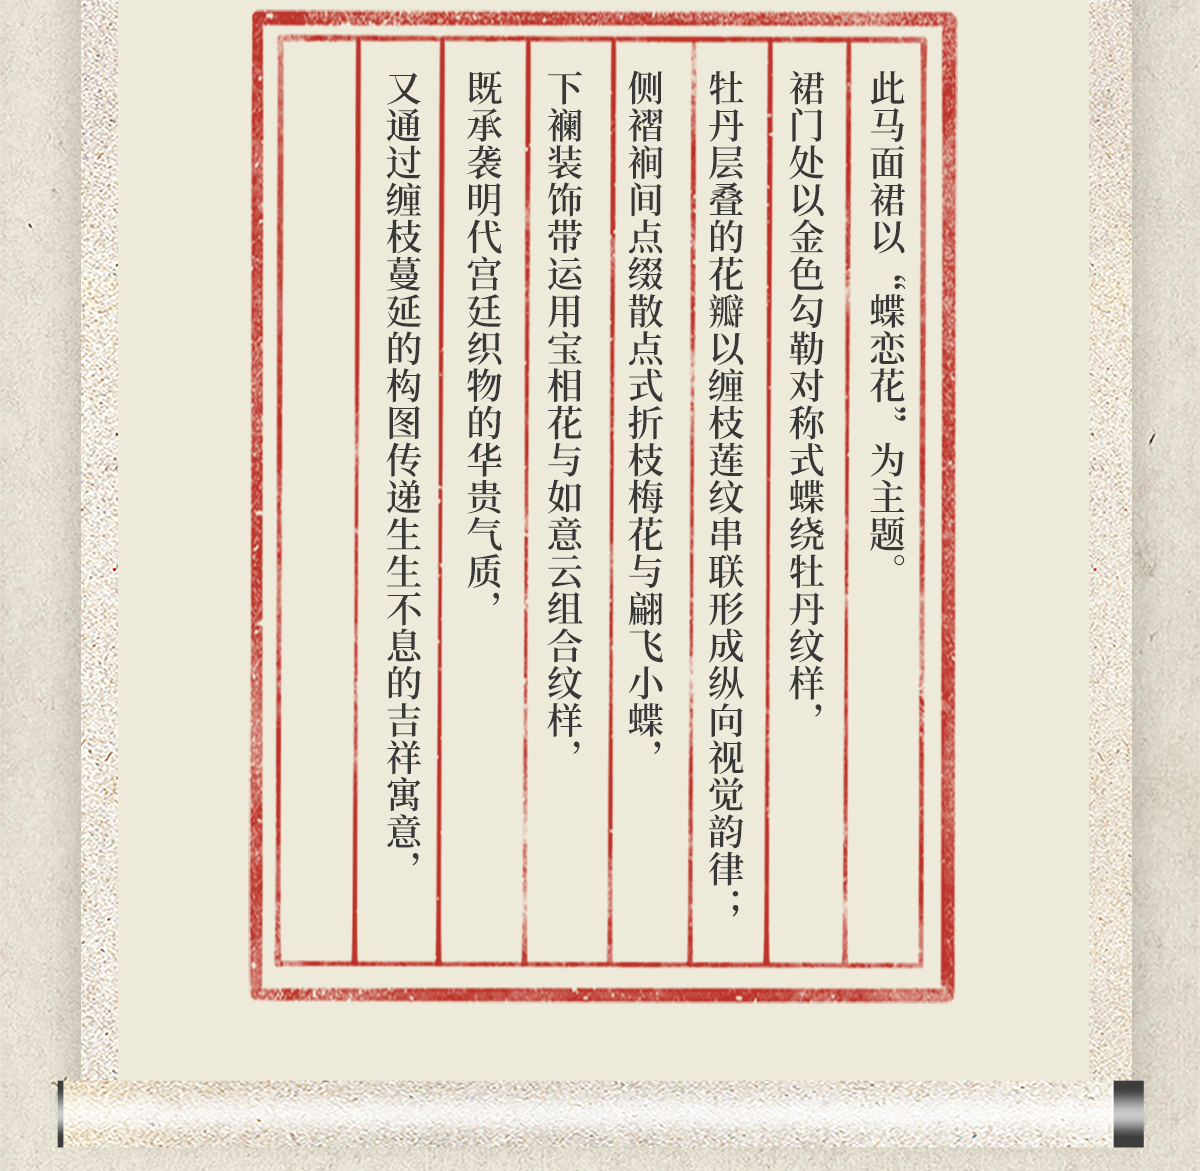 此马面裙以“蝶恋花”为主题。
裙门处以金色勾勒对称式蝶绕牡丹纹样，
牡丹层叠的花瓣以缠枝莲纹串联形成纵向视觉韵律；
侧褶裥间点缀散点式折枝梅花与翩飞小蝶，
下襕装饰带运用宝相花与如意云组合纹样，
既承袭明代宫廷织物的华贵气质，
又通过缠枝蔓延的构图传递生生不息的吉祥寓意，